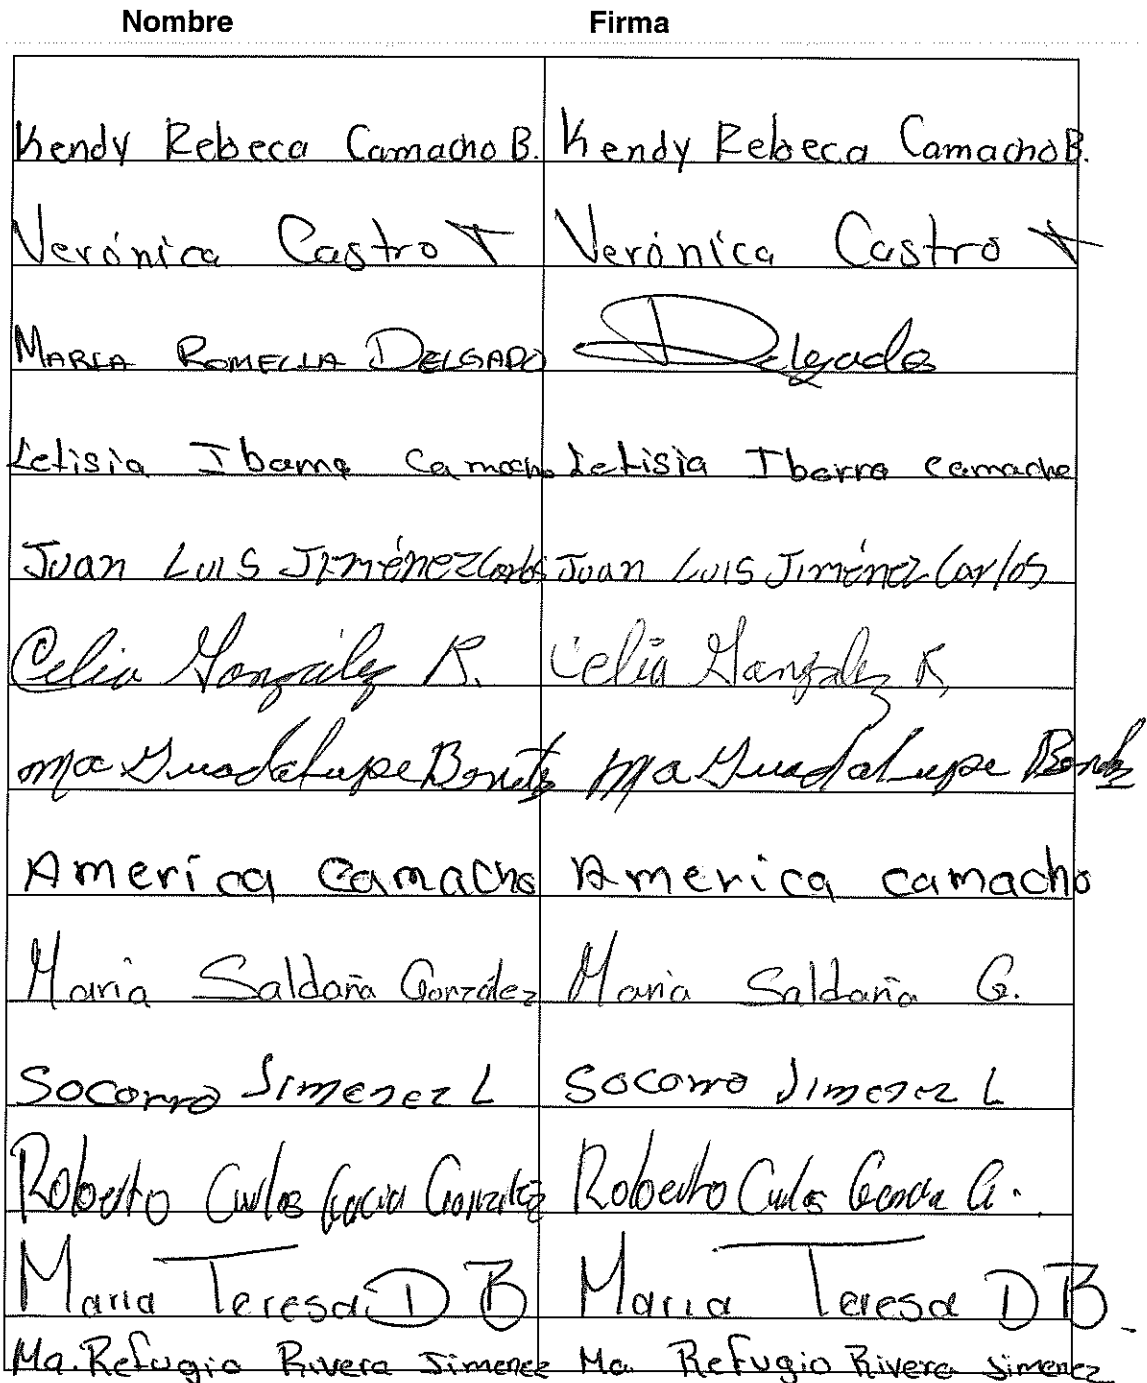 Nombre Firma
Kendy Rebeca Camacho B. Kendy Rebeca Camacho B.
Verónica Castro T Verónica Castro T
MARIA ROMELIA DELGADO Delgado
Letisia Ibarra Camacho Letisia Ibarra camacho
Juan Luis Jiménez Carlos Juan Luis Jiménez Carlos
Celia González R. Celia González R
Ma Guadalupe Benitez Ma Guadalupe
America Camacho America camacho
Maria Saldaña González Maria Saldaña G.
Socorro Jimenez L Socorro Jimenez L
Roberto Carlos Garcia González Roberto Carlos Garcia G.
Maria Teresa D B Maria Teresa D B
Ma. Refugio Rivera Jimenez Ma. Refugio Rivera Jimenez